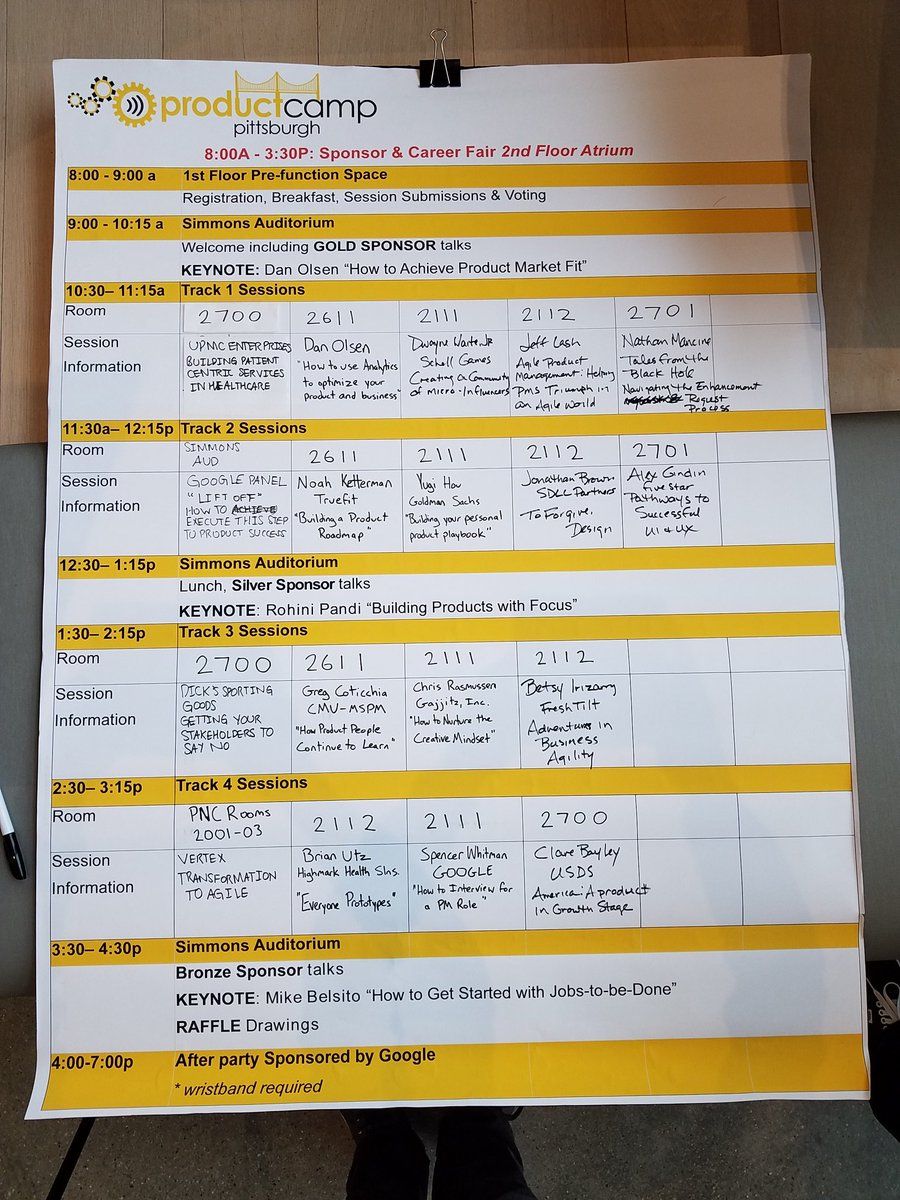 productcamp
pittsburgh
8:00A - 3:30P: Sponsor & Career Fair 2nd Floor Atrium
8:00 - 9:00 a 1st Floor Pre-function Space
Registration, Breakfast, Session Submissions & Voting
9:00 - 10:15 a Simmons Auditorium
Welcome including GOLD SPONSOR talks
KEYNOTE: Dan Olsen “How to Achieve Product Market Fit”
10:30– 11:15a Track 1 Sessions
Room 2700 2611 2111 2112 2701
Session Information
UPMC ENTERPRISES
BUILDING PATIENT
CENTRIC SERVICES
IN HEALTHCARE
Dan Olsen
"How to use Analytics
to optimize your
product and business"
Dwayne Waite Jr
Schell Games
Creating a Community
of Micro-Influencers
Jeff Lash
Agile Product
Management: Helping
PMs Triumph in
an Agile World
Nathan Mancine
Tales from the
Black Hole
Navigating the Enhancement
Request
Process
11:30a– 12:15p Track 2 Sessions
Room SIMMONS AUD 2611 2111 2112 2701
Session Information
GOOGLE PANEL
"LIFT OFF"
HOW TO ACHIEVE
EXECUTE THIS STEP
TO PRODUCT SUCCESS
Noah Ketterman
Truefit
"Building a Product
Roadmap"
Yugi Hou
Goldman Sachs
"Building your personal
product playbook"
Jonathan Brown
SDLC Partners
To Forgive,
Design
Alex Gindin
five star
Pathways to
Successful
UI & UX
12:30– 1:15p Simmons Auditorium
Lunch, Silver Sponsor talks
KEYNOTE: Rohini Pandi “Building Products with Focus”
1:30– 2:15p Track 3 Sessions
Room 2700 2611 2111 2112
Session Information
DICK'S SPORTING
GOODS
GETTING YOUR
STAKEHOLDERS TO
SAY NO
Greg Coticchia
CMU-MSPM
"How Product People
Continue to Learn"
Chris Rasmussen
Gajjitz, Inc.
"How to Nurture the
Creative Mindset"
Betsy Irizarry
Fresh Tilt
Adventures in
Business
Agility
2:30– 3:15p Track 4 Sessions
Room PNC Rooms 2001-03 2112 2111 2700
Session Information
VERTEX
TRANSFORMATION
TO AGILE
Brian Utz
Highmark Health Slns.
"Everyone Prototypes"
Spencer Whitman
GOOGLE
"How to Interview for
a PM Role"
Clare Bayley
USDS
America: A product
in Growth Stage
3:30– 4:30p Simmons Auditorium
Bronze Sponsor talks
KEYNOTE: Mike Belsito “How to Get Started with Jobs-to-be-Done”
RAFFLE Drawings
4:00-7:00p After party Sponsored by Google
* wristband required